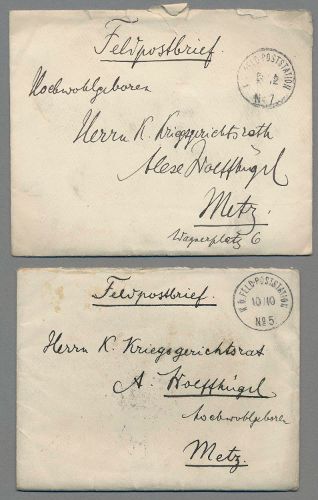 Feldpostbrief.
FELD-POSTSTATION
12
No 7
Hochwohlgeboren
Herrn K. Kriegsgerichtsrath
Wolffhügel
Metz.
6
Feldpostbrief.
K.D. FELD-POSTSTATION
10/10
No 5
Herrn K. Kriegsgerichtsrat
A. Wolffhügel
Hochwohlgeboren
Metz.